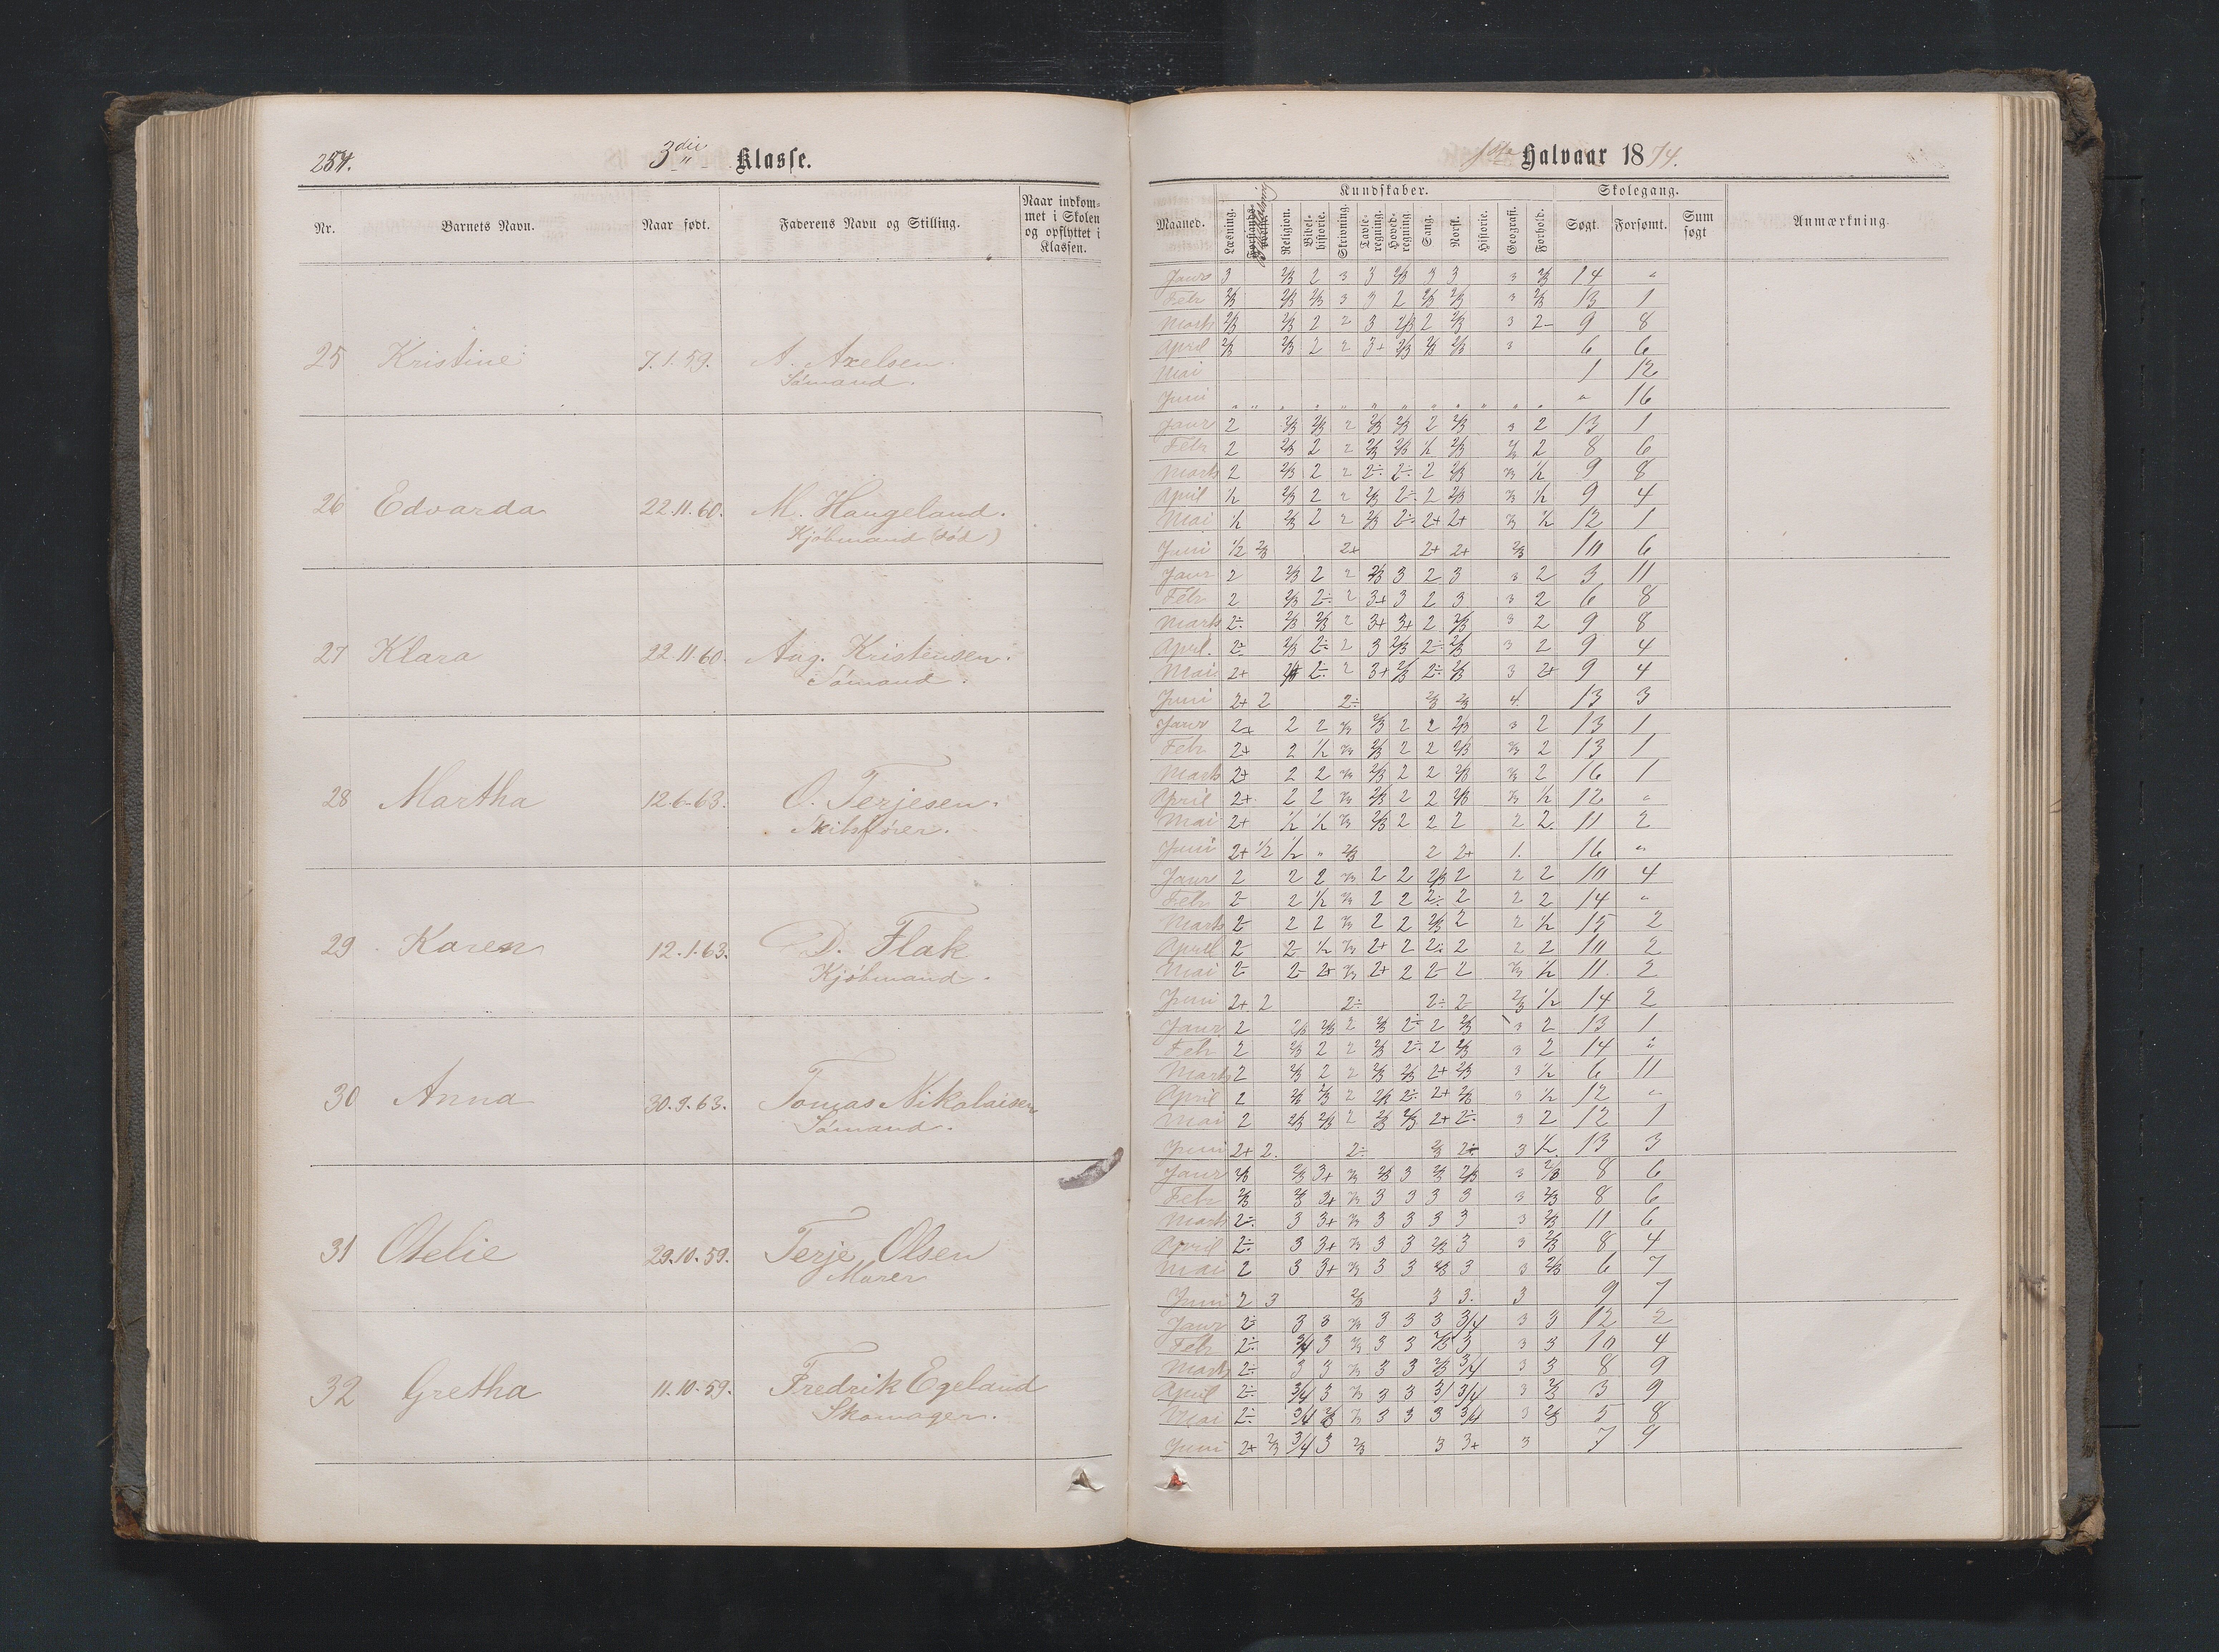 254.
3die Klasse.
Nr. Barnets Navn. Naar født. Faderens Navn og Stilling. Naar indkommet i Skolen og opflyttet i Klassen.
25 Kristine 7.1.59. A. Axelsen.
Sømand.
26 Edvarda 22.11.60. M. Haugeland.
Kjøbmand (død)
27 Klara 22.11.60. Aug. Kristensen.
Sømand.
28 Martha 12.6.63. O. Terjesen.
Skibsfører.
29 Karen 12.1.63. D. Flak
Kjøbmand.
30 Anna 30.9.63. Tomas Nikolaisen
Sømand.
31 Otelie 29.10.59. Terje Olsen
Murer
32 Gretha 11.10.59. Fredrik Egeland
Skomager.
1ste Halvaar 1874.
Kundskaber. Skolegang.
Maaned. Læsning. Religion. Bibelhistorie. Skrivning. Tavleregning. Hovedregning. Sang. Norsk. Historie. Geografi. Forhold. Søgt. Forsømt. Sum søgt Anmærkning.
Janr 3 2/3 2 3 3 2/3 3 3 3 2/3 14 "
Febr 2/3 2/3 2/3 3 3 2 2/3 2/3 3 2/3 13 1
Marts 2/3 2/3 2 2 3 2/3 2 2/3 3 2- 9 8
April 2/3 2/3 2 2 3+ 2/3 2/3 2/3 3 6 6
Mai 1 12
Juni " " " " " " " " " " " " " 16
Janr 2 2/3 2/3 2 2/3 2/3 2 2/3 3 2 13 1
Febr 2 2/3 2 2 2/3 2/3 1/2 2/3 2/3 2 8 6
Marts 2 2/3 2 2 2÷ 2÷ 2 2/3 2/3 1/2 9 8
April 1/2 2/3 2 2 2/3 2÷ 2 2/3 2/3 1/2 9 4
Mai 1/2 2/3 2 2 2/3 2÷ 2+ 2+ 2/3 1/2 12 1
Juni 1/2 2/3 2+ 2+ 2+ 2/3 10 6
Janr 2 2/3 2 2 2/3 3 2 3 3 2 3 11
Febr 2 2/3 2÷ 2 3+ 3 2 3 3 2 6 8
Marts 2÷ 2/3 2/3 2 3+ 3+ 2 2/3 3 2 9 8
April. 2÷ 2/3 2÷ 2 3 2/3 2÷ 2/3 3 2 9 4
Mai 2+ 2÷ 2 3+ 2/3 2÷ 2/3 3 2+ 9 4
Juni 2+ 2 2÷ 2/3 2/3 4. 13 3
Janr 2+ 2 2 2/3 2/3 2 2 2/3 3 2 13 1
Febr 2+ 2 1/2 2/3 2/3 2 2 2/3 2/3 2 13 1
Marts 2+ 2 2 2/3 2/3 2 2 2/3 2/3 2 16 1
April 2+ 2 2 2/3 2/3 2 2 2/3 2/3 1/2 12 "
Mai 2+ 1/2 1/2 2/3 2/3 2 2 2 2 2. 11 2
Juni 2+ 1/2 1/2 " 2/3 2 2+ 1. 16 "
Janr 2 2 2 2/3 2 2 2/3 2 2 2 10 4
Febr 2- 2 1/2 2/3 2 2 2÷ 2 2 2 14 "
Marts 2- 2 2 2/3 2 2 2/3 2 2 1/2 15 2
April 2- 2- 1/2 2/3 2+ 2 2÷ 2 2 2 10 2
Mai 2- 2- 2+ 2/3 2+ 2 2- 2 2/3 1/2 11. 2
Juni 2+ 2 2÷ 2÷ 2- 2/3 1/2 14 2
Janr 2 2/3 2/3 2 2/3 2÷ 2 2/3 3 2 13 1
Febr 2 2/3 2 2 2/3 2÷ 2 2/3 3 2 14 "
Marts 2 2/3 2 2 2/3 2/3 2+ 2/3 3 1/2 6 11
April 2 2/3 2/3 2 2/3 2÷ 2+ 2/3 3 1/2 12 "
Mai 2 2/3 2/3 2 2/3 2/3 2+ 2÷ 3 2 12 1
Juni 2+ 2. 2÷ 2/3 2÷ 3 1/2. 13 3
Janr 2/3 2/3 3+ 2/3 2/3 3 2/3 2/3 3 2/3 8 6
Febr 2/3 2/3 3+ 2/3 3 3 3 3 3 2/3 8 6
Marts 2÷ 3 3+ 2/3 3 3 3 3 3 2/3 11 6
April 2÷ 3 3+ 2/3 3 3 2/3 3 3 2/3 8 4
Mai 2 3 3+ 2/3 3 3 2/3 3 3 2/3 6 7
Juni 2 3 2/3 3 3. 3 9 7
Janr 2÷ 3 3 2/3 3 3 3 3/4 3 3 12 2
Febr 2÷ 3/4 3 2/3 3 3 2/3 3 3 3 10 4
Marts 2÷ 3 3 2/3 3 3 2/3 3/4 3 3 8 9
April 2÷ 3/4 3 2/3 3 3 3/ 3/4 3 2/3 3 9
Mai 2÷ 3/4 2/3 2/3 3 3 3 3/4 3 2/3 5 8
Juni 2+ 2/3 3/4 3 2/3 3 3+ 3 7 9